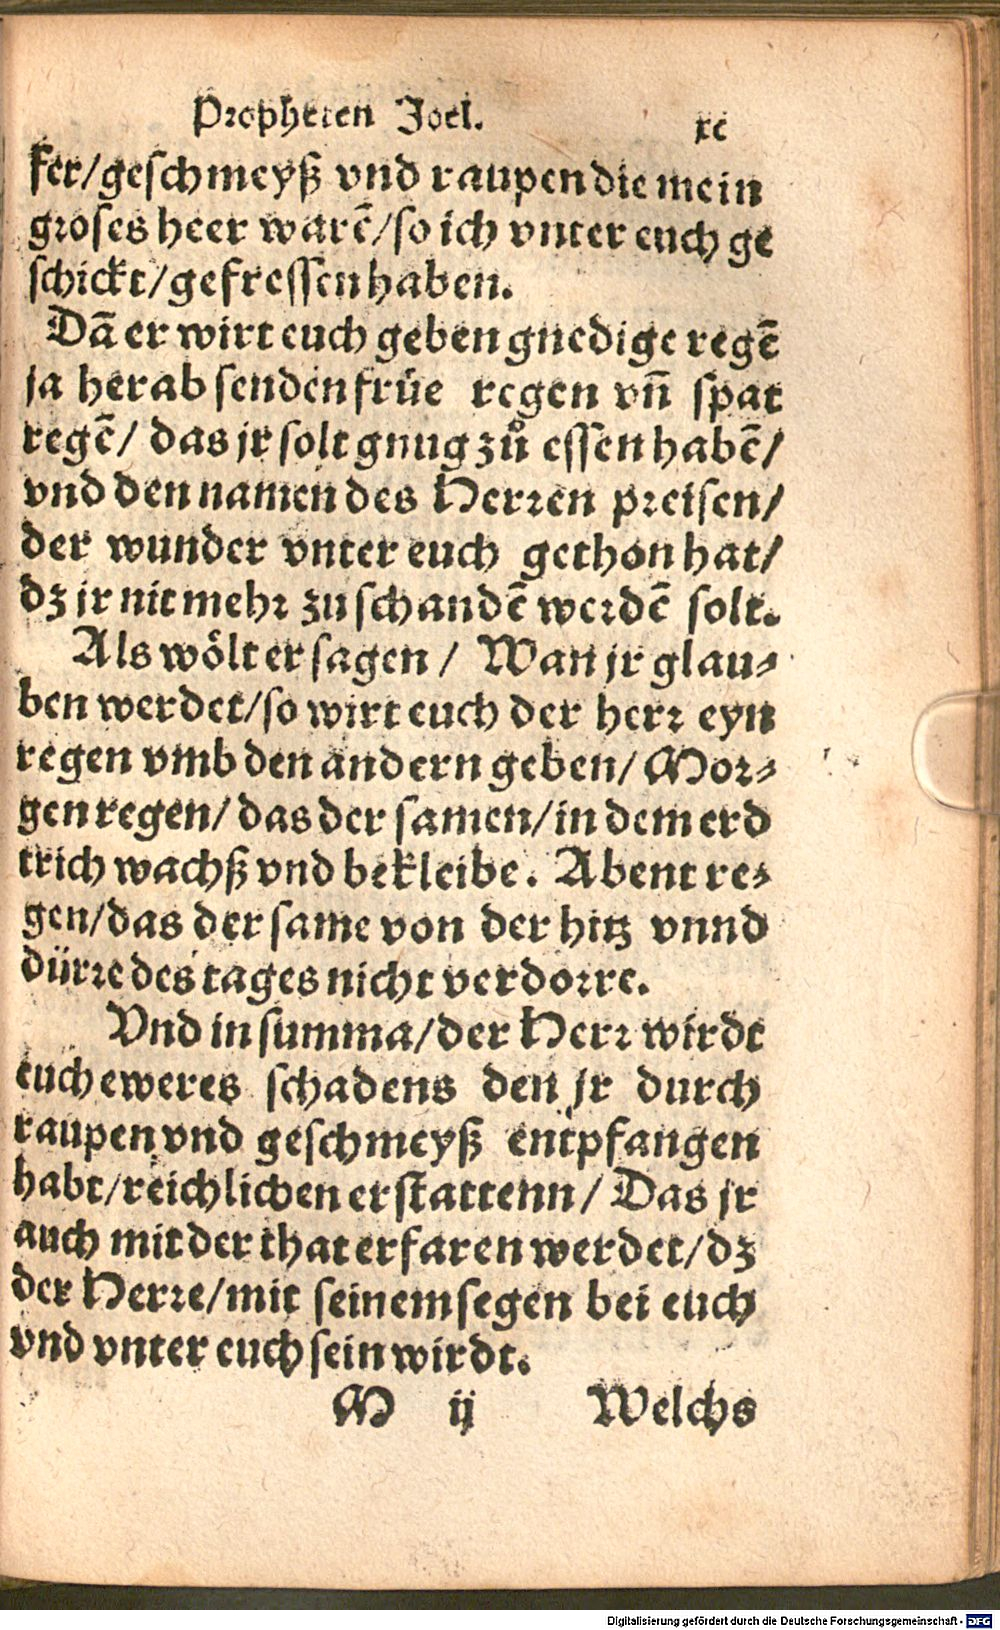 Propheten Joel. xc
fer/geschmeyß vnd raupen die mein
groses heer warē/so ich vnter euch ge
schickt/gefressen haben.
Dañ er wirt euch geben gnedige regē
ja herab senden früe regen vñ spat
regē/ das jr solt gnug zů essen habē/
vnd den namen des Herren preisen/
der wunder vnter euch gethon hat/
dz jr nit mehr zu schandē werdē solt.
Als wölt er sagen/ Wan jr glau⸗
ben werdet/so wirt euch der herr eyn
regen vmb den andern geben/Mor⸗
gen regen/das der samen/in dem erd
trich wachß vnd bekleibe. Abent re⸗
gen/das der same von der hitz vnnd
dürre des tages nicht verdorre.
Vnd in summa/der Herr wirdt
euch eweres schadens den jr durch
raupen vnd geschmeyß entpfangen
habt/reichlichen erstattenn/ Das jr
auch mit der that erfaren werdet/dz
der Herre/mit seinem segen bei euch
vnd vnter euch sein wirdt.
M ij Welchs
Digitalisierung gefördert durch die Deutsche Forschungsgemeinschaft - DFG